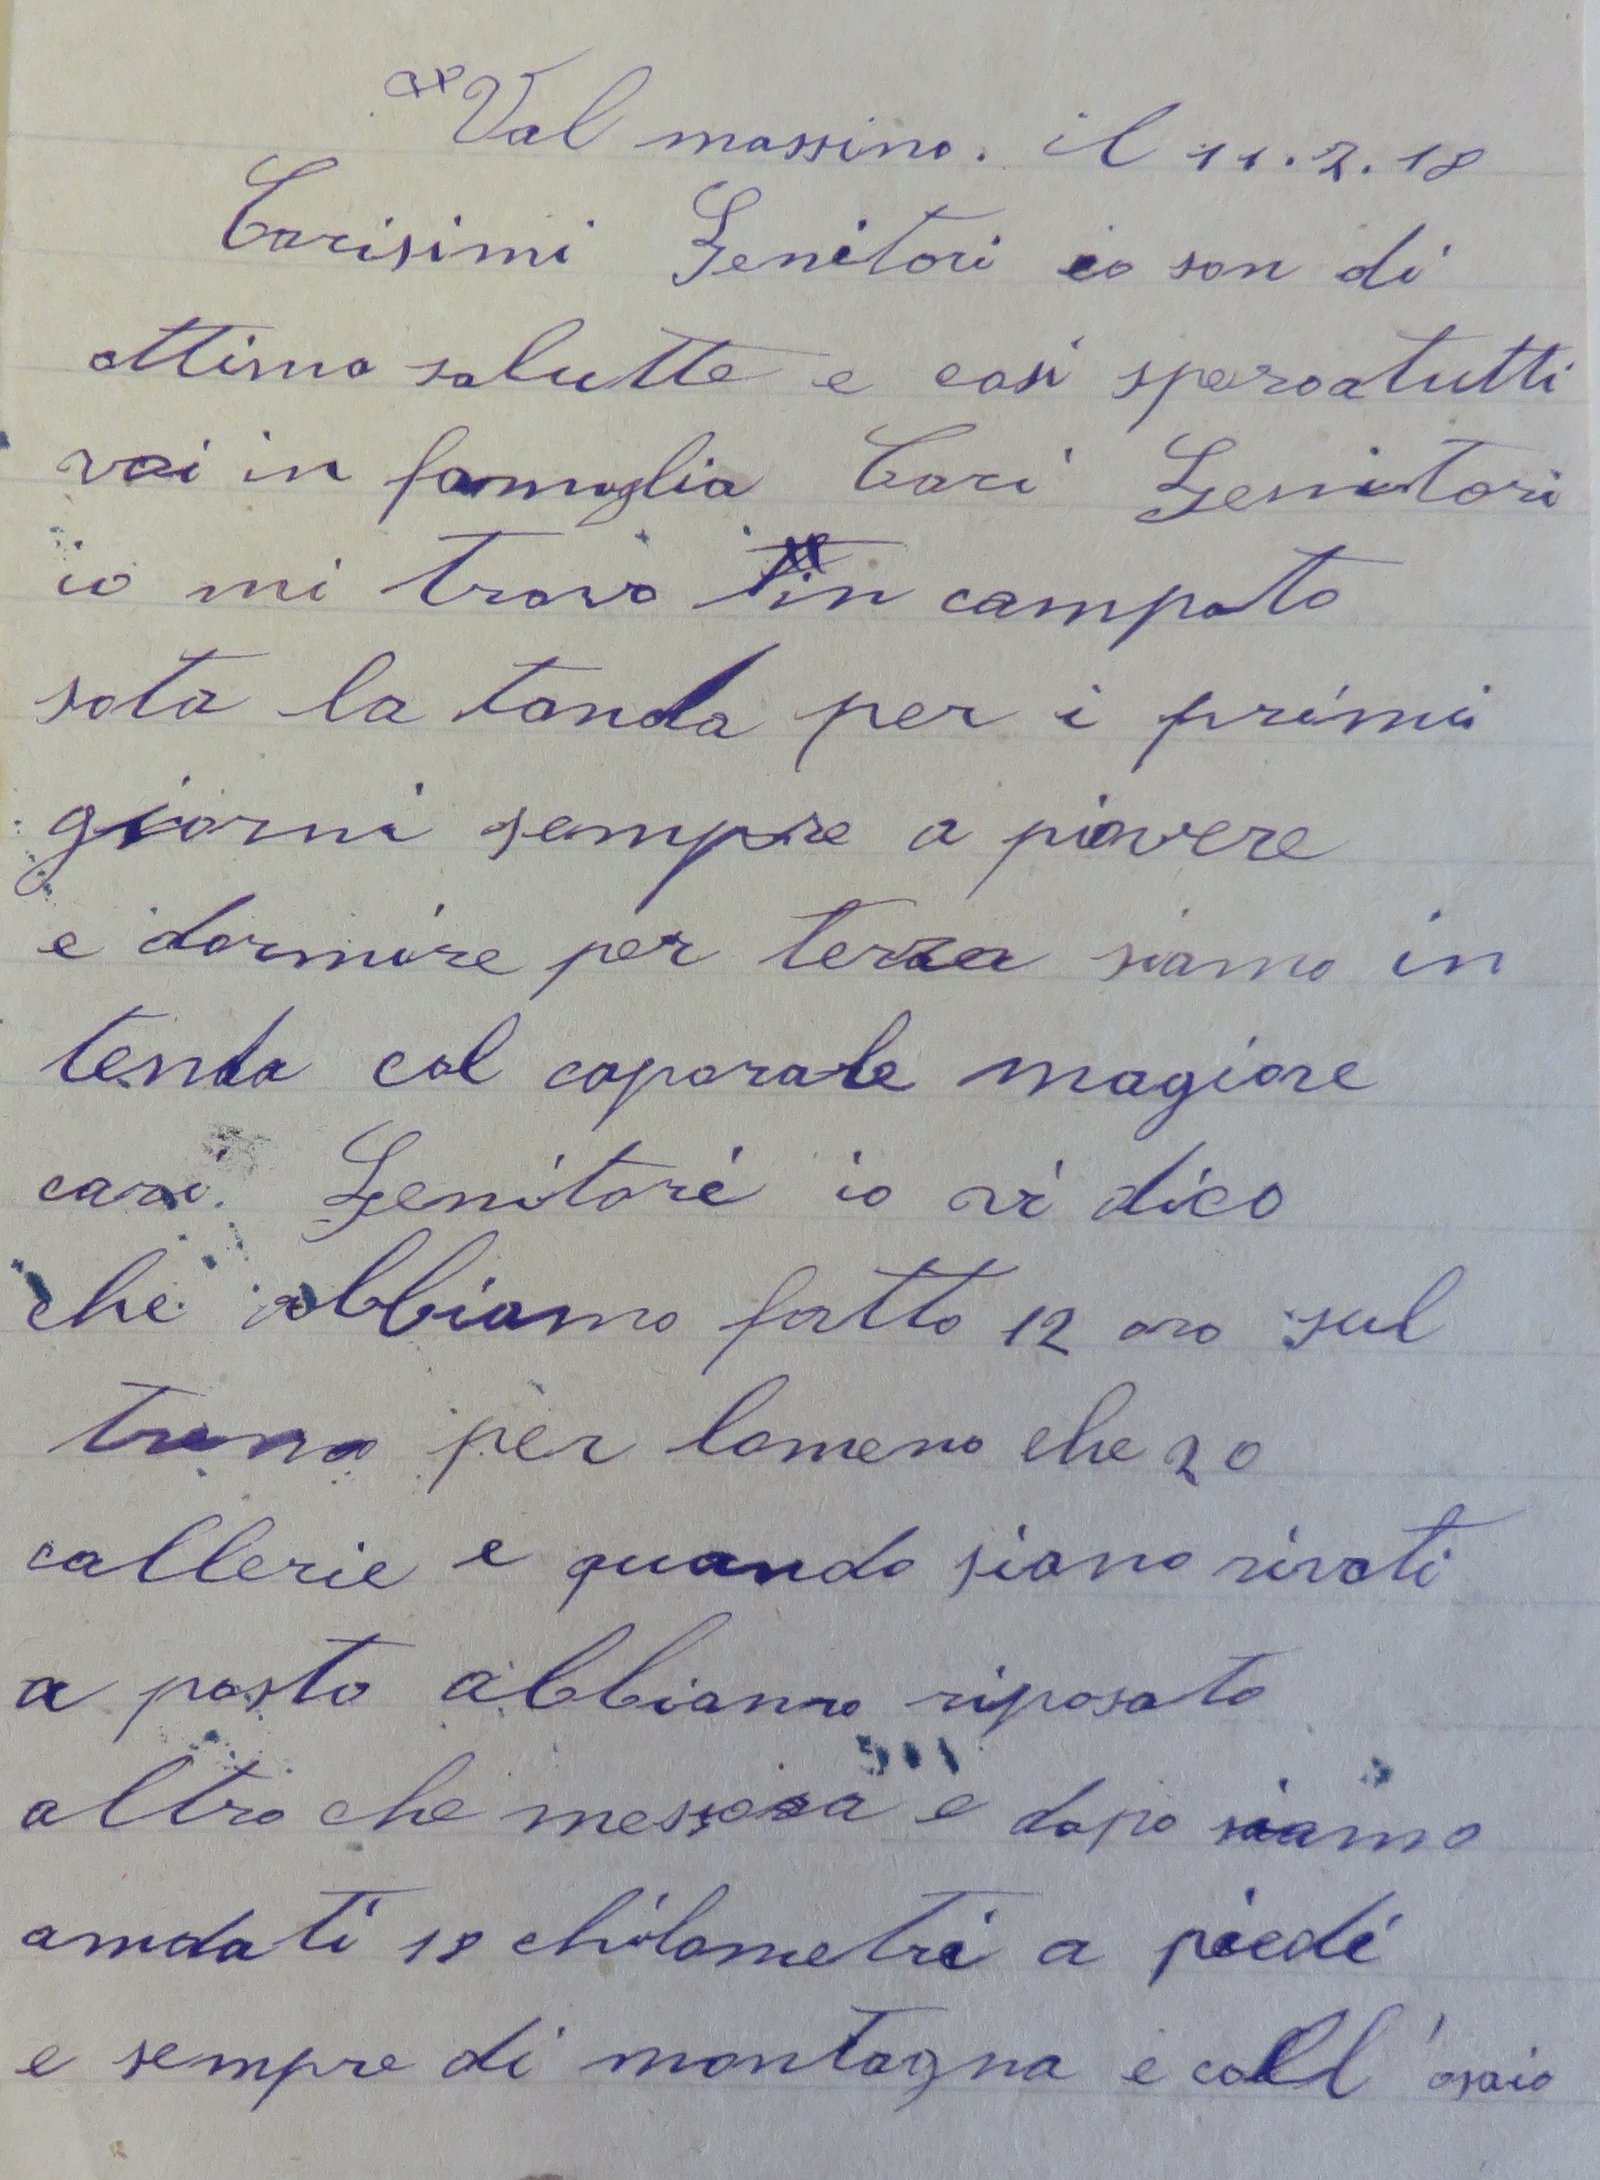 Val massino. il 11.2.18
Carisimi Genitori io son di
ottima salutte e cosi speroatutti
voi in famiglia Cari Genitori
io mi trovo in campato
sota la tanda per i primi
giorni sempre a piovere
e dormire per terra siamo in
tenda col caporale magiore
cari Genitori io vi dico
che abbiamo fatto 12 oro sul
treno per lomeno che 20
callerie e quando siano rivati
a posto abbiamo riposato
altro che messora e dopo siamo
andati 18 chilometri a piedi
e sempre di montagna e coll'osaio